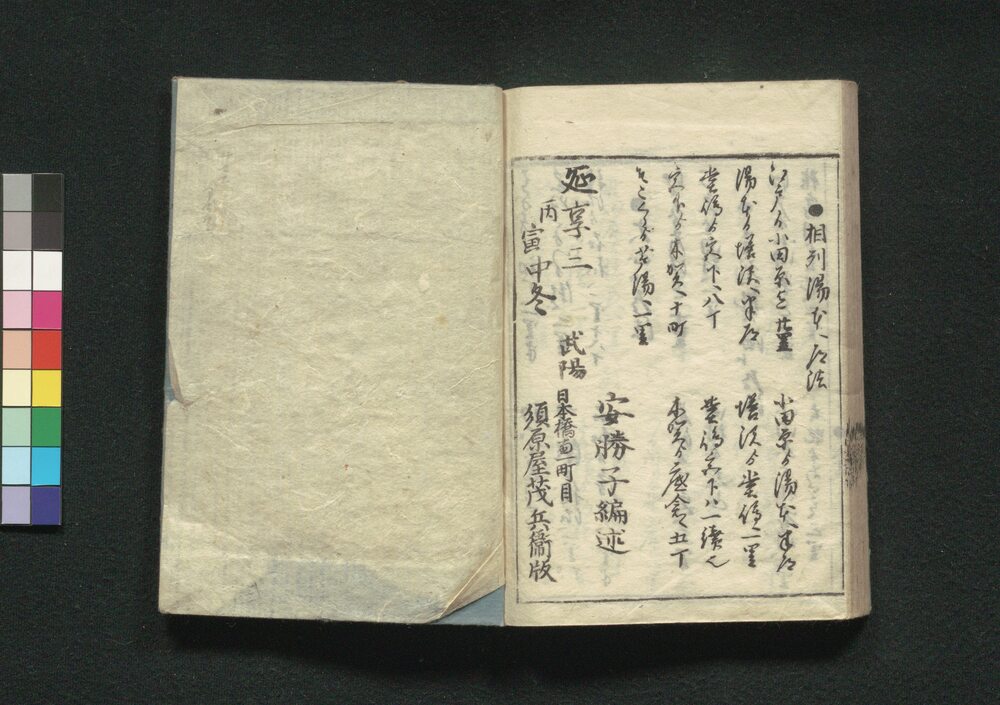 ●相刕湯本へ道法
江戸ゟ小田原迄廿里　小田原ゟ湯本へ半道
湯本ゟ塔沢へ半道　塔沢ゟ堂嶋一里
堂嶋ゟ宮下へ八丁　堂嶋宮下ハ一續也
宮下ゟ木賀へ十町　木賀ゟ底倉へ五丁
そこくらゟ芦湯へ一里
安勝子編述
延享三　武陽
丙寅中冬
日本橋南一町目
須原屋茂兵衞版